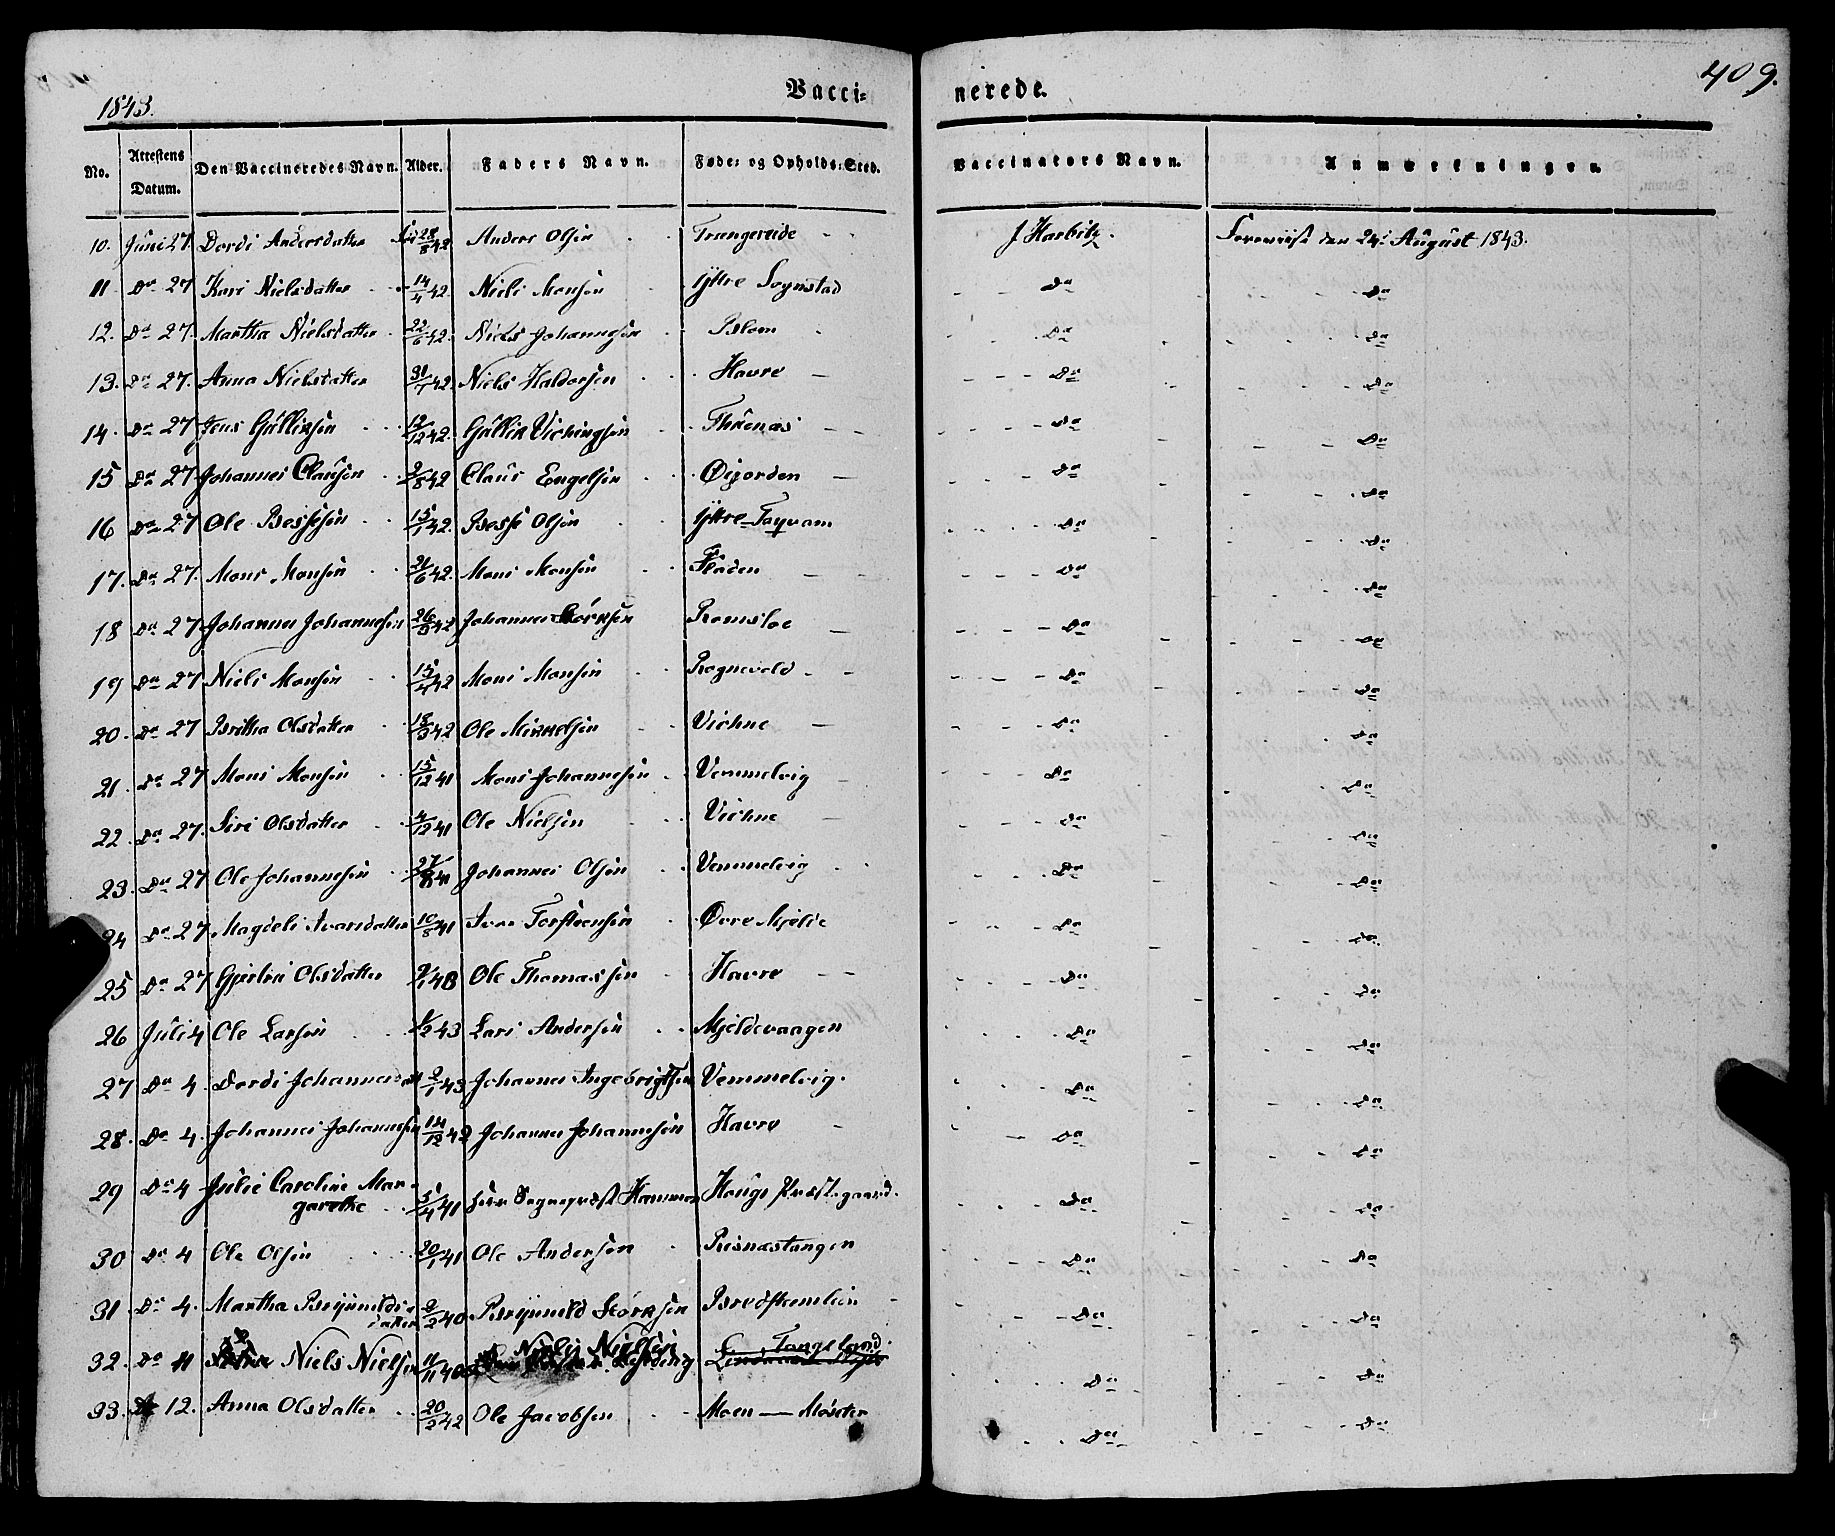 409.
1843.
Vacci= nerede.
No. Attestens Datum. Den Vaccineredes Navn. Alder. Faders Navn. Føde= og Opholds=Sted. Vaccinators Navn. Anmærkninger.
10. Juni 27. Dordi Andersdatter 28/8 42 Anders Olsen J Harbitz. Foreviist den 24de August 1843.
11 Do 27 Kari Nielsdatter 14/4 42. Niels Monsen Yttre Do Do
12. Do 27. Martha Nielsdatter 22/6 42. Niels Johannesen Do Do
13. Do 27. Anna Nielsdatter 31/7 42. Niels Haldorsen Havre Do Do
14. Do 27 Jens Gullixsen 12/12 42. Gullix Do Do
15 Do 27 Johannes Clausen 2/8 42 Claus Engelsen Øijorden Do Do
16 Do 27 Ole Bessesen 15/1 42. Besse Olsen Yttre Do Do
17. Do 27. Mons Monsen 21/6 42. Mons Monsen Do Do
18 Do 27 Johannes Johannesen 26/3 42 Johannes Størksen Romsloe Do Do
19 Do 27 Niels Monsen 15/4 42 Mons Monsen Do Do
20. Do 27 Brittha Olsdatter 18/3 42 Ole Mikkelsen Vichne Do Do
21. Do 27 Mons Monsen 15/12 41 Mons Johannesen Vemmelvig Do Do
22. Do 27. Siri Olsdatter 4/12 41 Ole Nielsen Vichne Do Do
23. Do 27 Ole Johannesen 41 Johannes Olsen Vemmelvig Do Do
24 Do 27 Magdeli Ivarsdatter 10/8 41 Ivar Torsteensen Øvre Mjelde Do Do
25 Do 27 Olsdatter Ole Thomassen Havre Do Do
26 Juli 4 Ole Larsen 43 Lars Andersen Mjeldevaagen Do Do
27 Do 4. Dordi Johannesdatt 2/1 43 Johannes Ingebrigtsen Vemmelvig. Do Do
28. Do 4. Johannes Johannesen 14/12 42 Johannes Johannesen Havre Do Do
29 Do 4 Julie Caroline Mar=
garethe 5/4 41 Herr Sognepræst Hammer Hougs Præstegaard. Do Do
30 Do 4 Ole Olsen 20/1 41 Ole Andersen Risnæstangen Do Do
31 Do 4. Martha Brynnilds=
datter 2/2 40 Brynnild Størksen Do Do
32. Do 11 Niels Nielsen 11/11 40 Niels Nielsen Tangeland Do Do
33. 12. Anna Olsdatter 20/2 42 Ole Jacobsen Moen — Møster Do Do